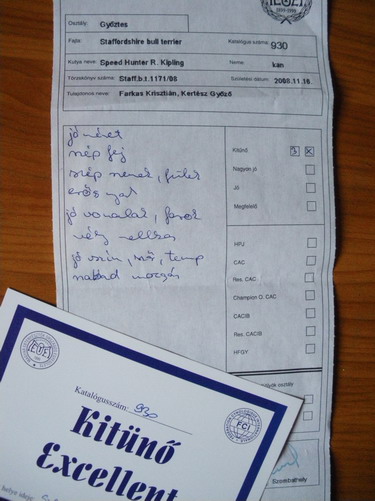 Osztály: Győztes
Fajta: Staffordshire bull terrier Katalógus száma: 930
Kutya neve: Speed Hunter R. Kipling Neme: kan
Törzskönyv száma: Staff.b.t.1171/08 Születési dátum: 2008.11.16.
Tulajdonos neve: Farkas Krisztián, Kertész Győző
jó méret
szép fej
szép szemek, fülek
erős nyak
jó vonalak, farok
mély mellkas
jó szín, szőr, temp
szabad mozgás
Kitűnő
Nagyon jó
Jó
Megfelelő
HPJ
CAC
Res. CAC
Champion O. CAC
CACIB
Res. CACIB
HFGY
osztály
Szombathely
FCI
Katalógusszám: 930
Kitűnő
Excellent
helye ideje: